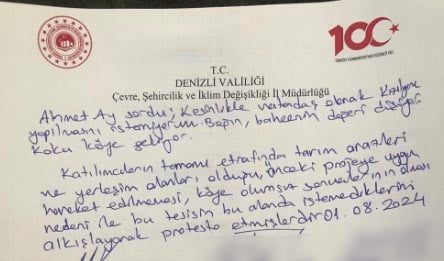 100
T.C.
DENİZLİ VALİLİĞİ
Çevre, Şehircilik ve İklim Değişikliği İl Müdürlüğü
Ahmet Ay sordu; Kesinlikle vatandaş olarak
yapılmasını istemiyorum. Bağın, bahçenin değeri düşüyor
koku köye geliyor.
Katılımcıların tamamı etrafında tarım arazileri
ve yerleşim alanları olduğu, önceki projeye uygun
hareket edilmemesi, köye olumsuz sonuçlarının olması
nedeni ile bu tesisin bu alanda istemediklerini
alkışlayarak protesto etmişlerdir 01.08.2024